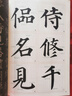 侍修千
名見